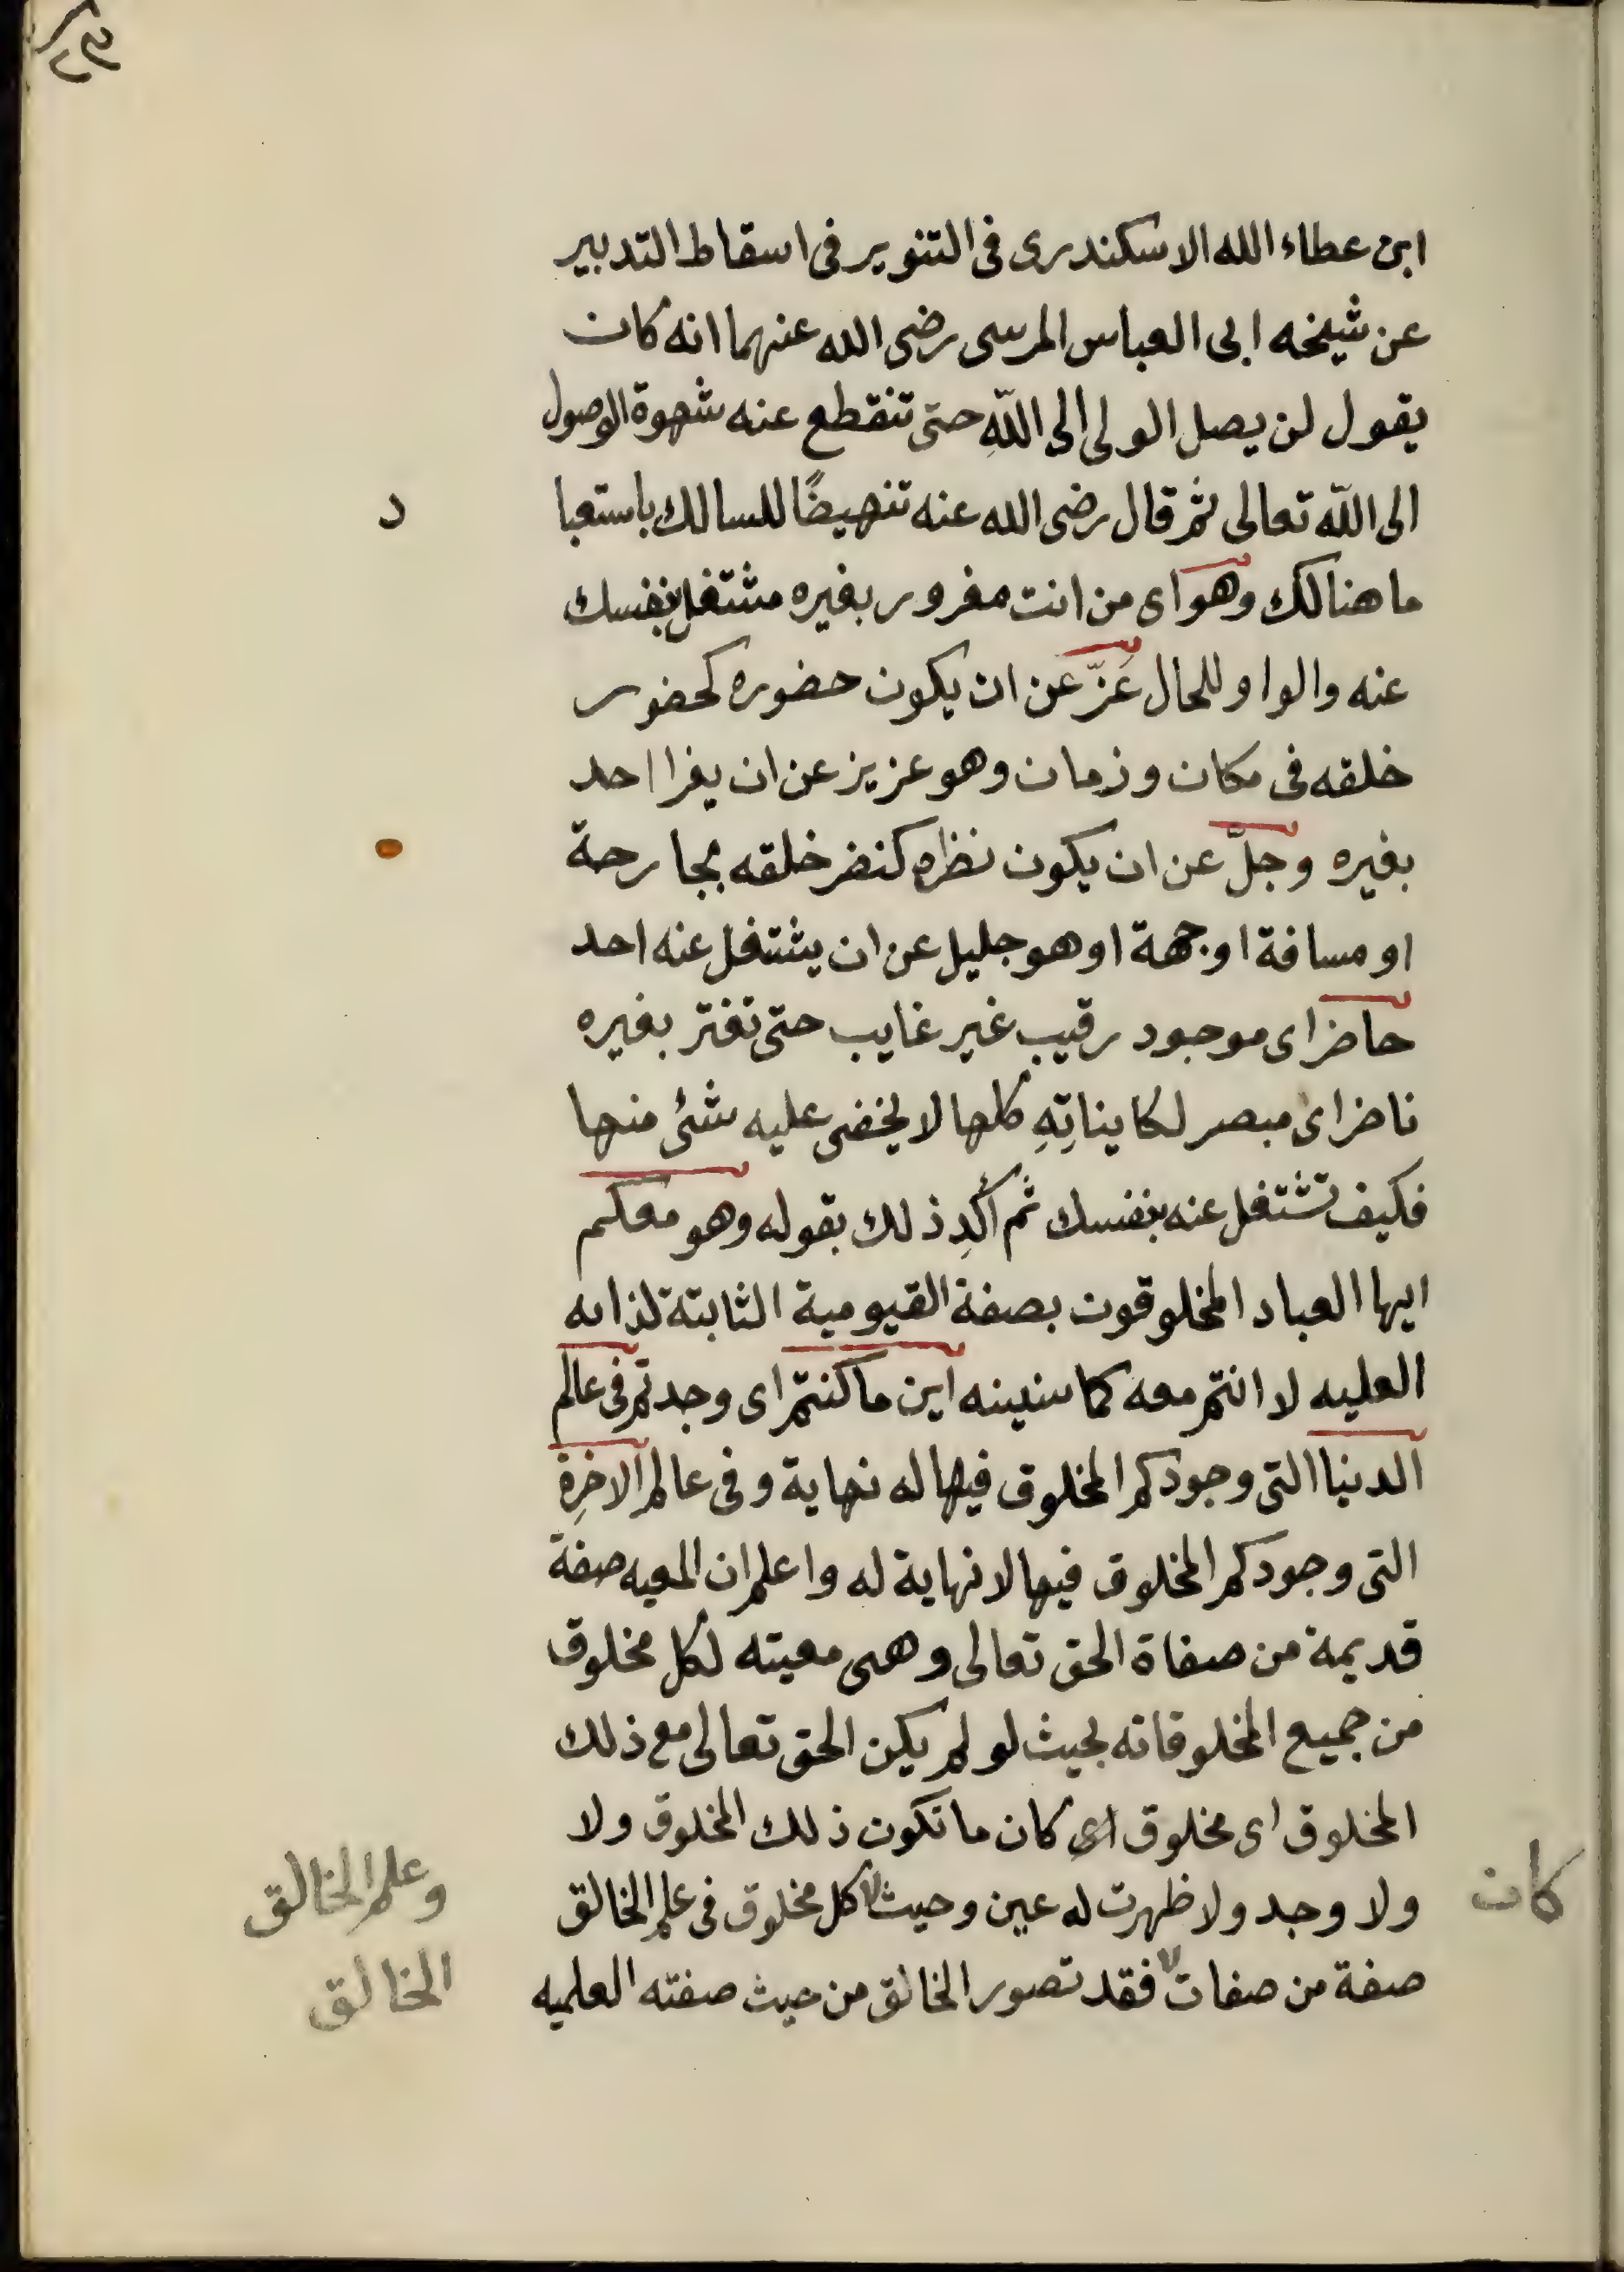 ابن عطاء الله الاسكندرى فى التنوير فى اسقاط التدبير
عن شيخه ابى العباس المرسى رضى الله عنهما انه كان
يقول لن يصل الولى الى اللّهِ حتى تنقطع عنه شهوة الوصول
الى اللّه تعالى ثم قال رضى الله عنه تنهيضًا للسالك باستعبا
د
ما هنالك وهو اى من انت مغرور بغيره مشتغل بنفسك
عنه والواو للحال عَزّ عن ان يكون حضوره كحضور
خلقه فى مكان وزمان وهو عزيز عن ان يغرا احد
بغيره وجلّ عن ان يكون نظره كنضر خلقه بجارحة
او مسافة او جهة او هو جليل عن ان يشتغل عنه احد
حاضر اى موجود رقيب غير غايب حتى تغتر بغيره
ناضر اى مبصر لكايناتِهِ كلها لا يخفى عليه شئ منها
فكيف تشتغل عنه بنفسك ثم أكدِ ذلك بقوله وهو معكم
ايها العباد المخلوقون بصفة القيومية الثابتة لذاته
العليه لا انتم معه كما سنبينه اين ما كنتم اى وجدتم فى عالم
الدنيا التى وجودكم المخلوق فيها له نهاية وفى عالم الاخرِة
التى وجودكم المخلوق فيها لا نهاية له واعلم ان المعيه صفة
قديمة من صفاة الحق تعالى وهى معيته لكل مخلوق
من جميع المخلوقاته بحيث لو لم يكن الحق تعالى مع ذلك
المخلوق اى مخلوق اى كان ما تكون ذلك المخلوق ولا
ولا وجد ولا ظهرت له عين وحيث كل مخلوق فى علم الخالق
كان
وعلم الخالق
صفة من صفات فقد تصور الخالق من حيث صفته العلميه
الخالق